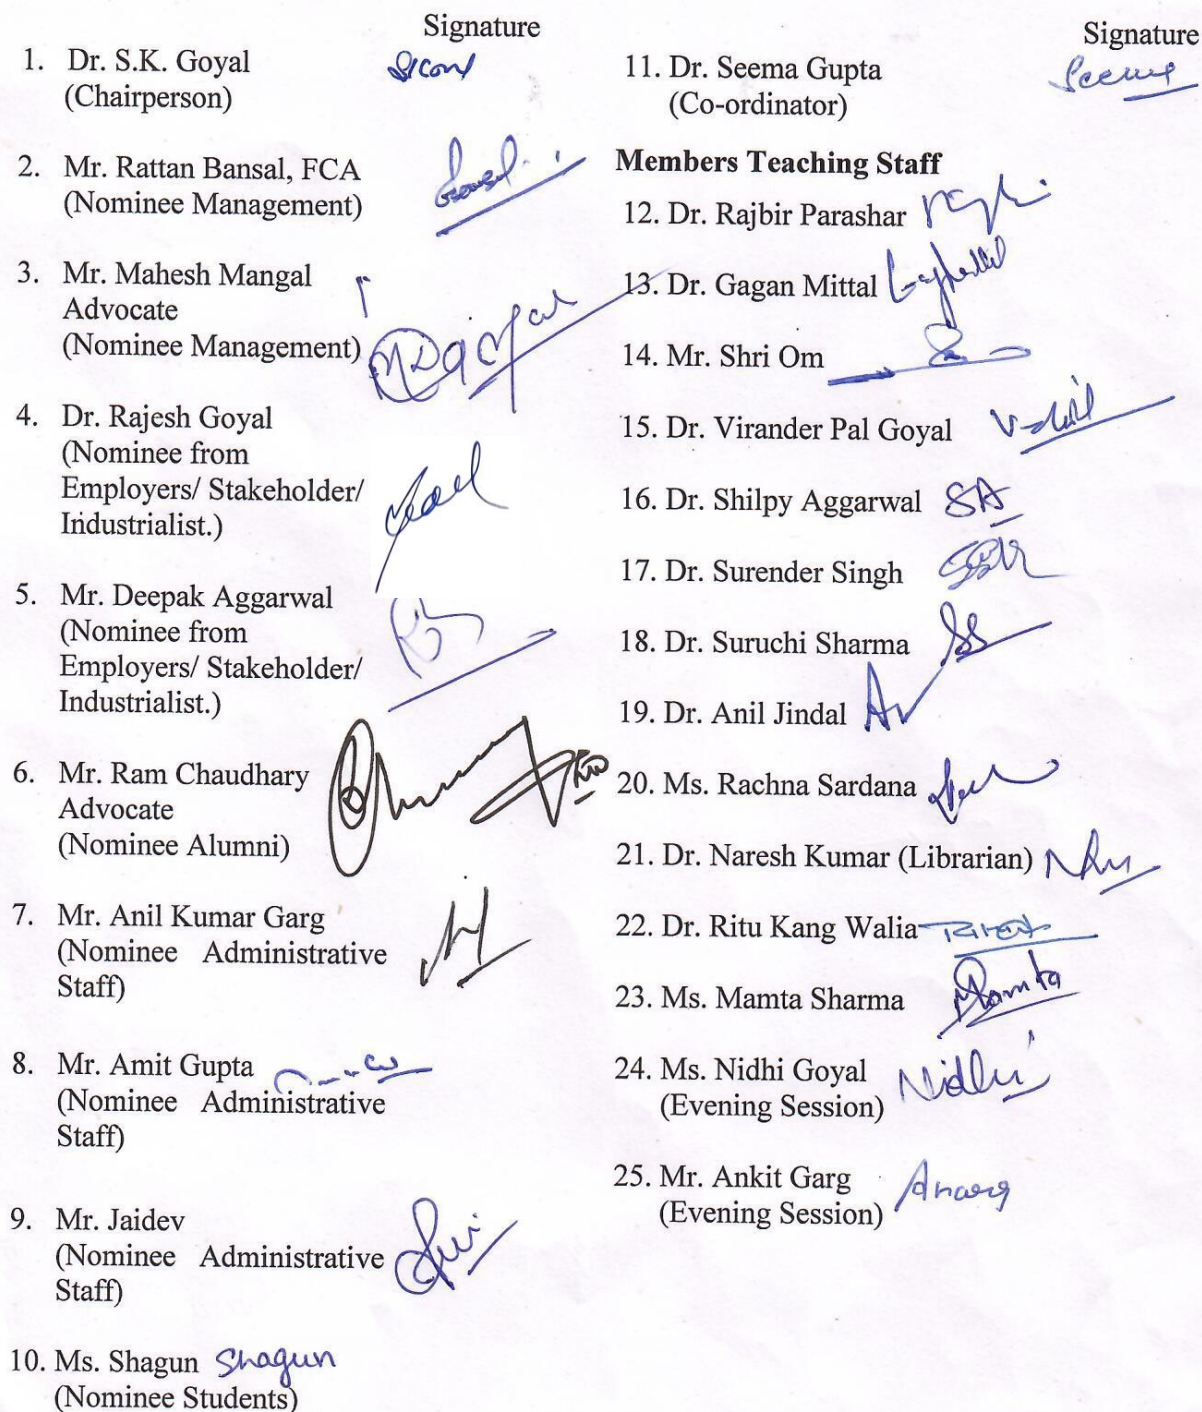 Signature
1. Dr. S.K. Goyal
(Chairperson)
2. Mr. Rattan Bansal, FCA
(Nominee Management)
3. Mr. Mahesh Mangal
Advocate
(Nominee Management)
4. Dr. Rajesh Goyal
(Nominee from
Employers/ Stakeholder/
Industrialist.)
5. Mr. Deepak Aggarwal
(Nominee from
Employers/ Stakeholder/
Industrialist.)
6. Mr. Ram Chaudhary
Advocate
(Nominee Alumni)
7. Mr. Anil Kumar Garg
(Nominee Administrative
Staff)
8. Mr. Amit Gupta
(Nominee Administrative
Staff)
9. Mr. Jaidev
(Nominee Administrative
Staff)
10. Ms. Shagun Shagun
(Nominee Students)
Signature
11. Dr. Seema Gupta
(Co-ordinator)
Members Teaching Staff
12. Dr. Rajbir Parashar
13. Dr. Gagan Mittal
14. Mr. Shri Om
15. Dr. Virander Pal Goyal
16. Dr. Shilpy Aggarwal SA
17. Dr. Surender Singh
18. Dr. Suruchi Sharma SS
19. Dr. Anil Jindal
20. Ms. Rachna Sardana
21. Dr. Naresh Kumar (Librarian)
22. Dr. Ritu Kang Walia
23. Ms. Mamta Sharma Mamta
24. Ms. Nidhi Goyal Nidhi
(Evening Session)
25. Mr. Ankit Garg
(Evening Session)